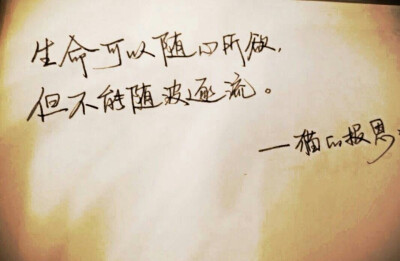 生命可以随心所欲，
但不能随波逐流。
—猫的报恩